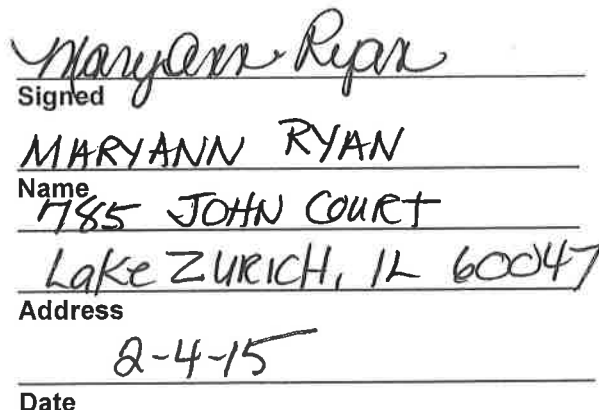 MaryAnn Ryan
Signed
MARYANN RYAN
Name
785 JOHN COURT
Lake ZURICH, IL 60047
Address
2-4-15
Date